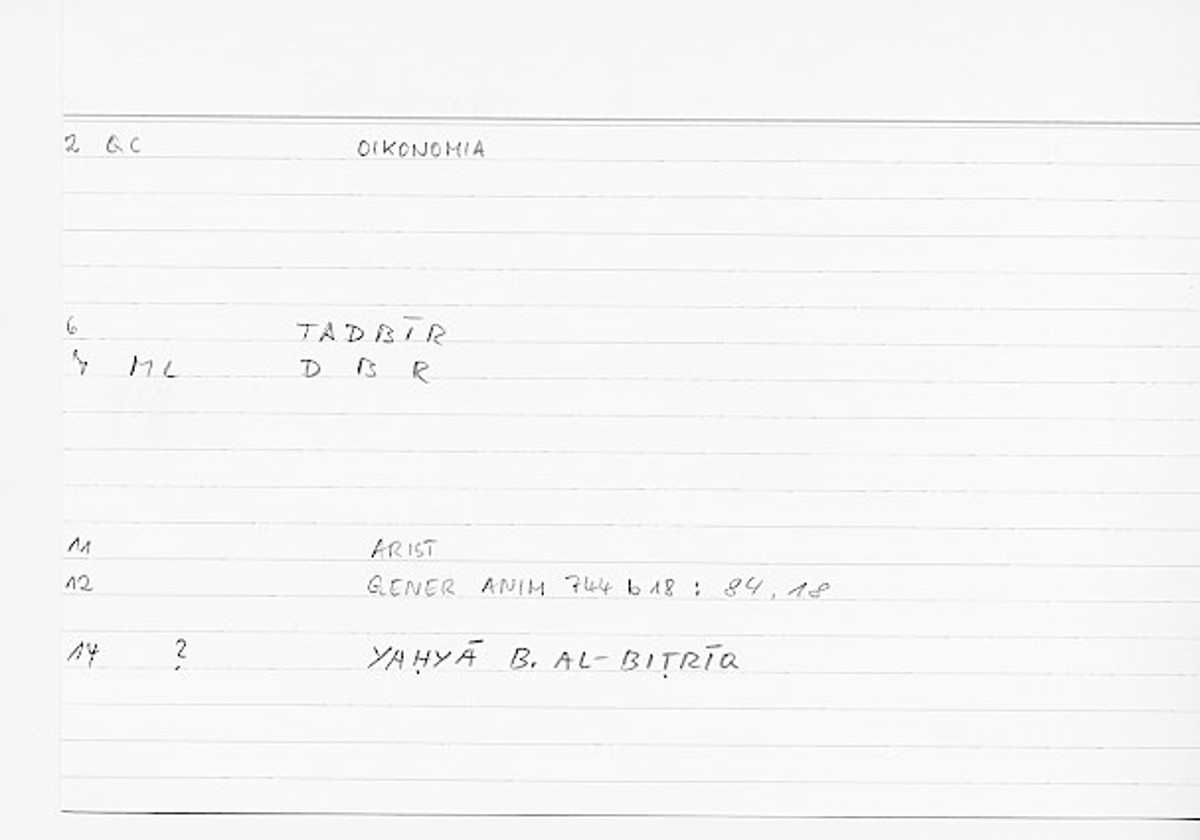 2 GC OIKONOMIA
6 TADBĪR
7 ML D B R
11 ARIST
12 GENER ANIM 744 b 18 : 84, 18
14 ? YAḤYĀ B. AL-BIṬRĪQ